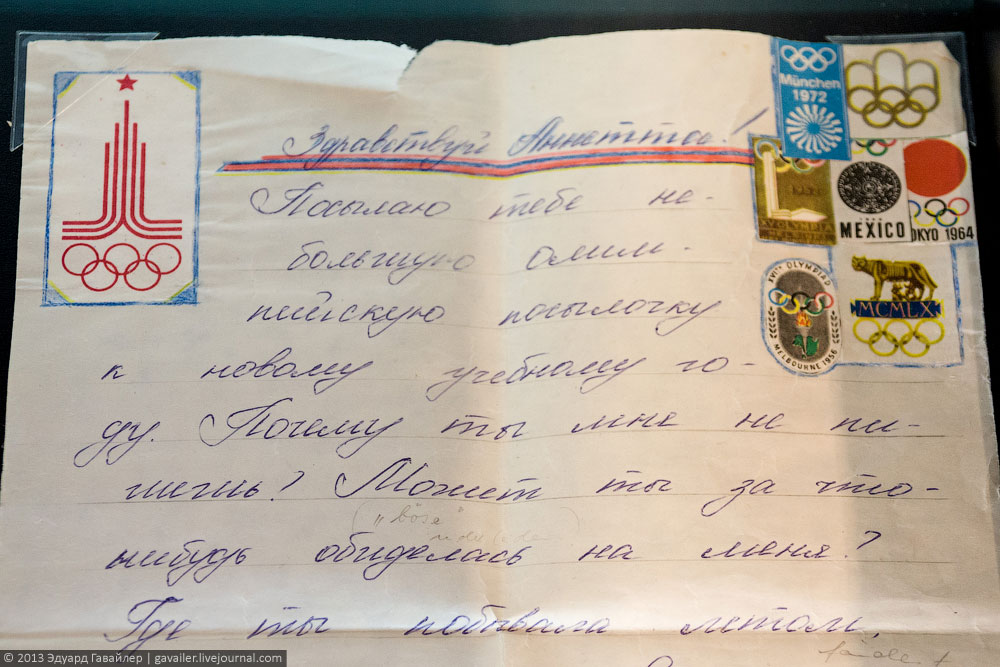 Здравствуй Аннетта!
Посылаю тебе не-
большую олим-
пийскую посылочку
к новому учебному го-
ду. Почему ты мне не пи-
шешь? Может ты за что-
„böse"
нибудь обиделась на меня?
Где ты побывала летом,
München
1972
MEXICO
TOKYO 1964
XVIth OLYMPIAD
MELBOURNE 1956
MCMLX
© 2013 Эдуард Гавайлер | gavailer.livejournal.com